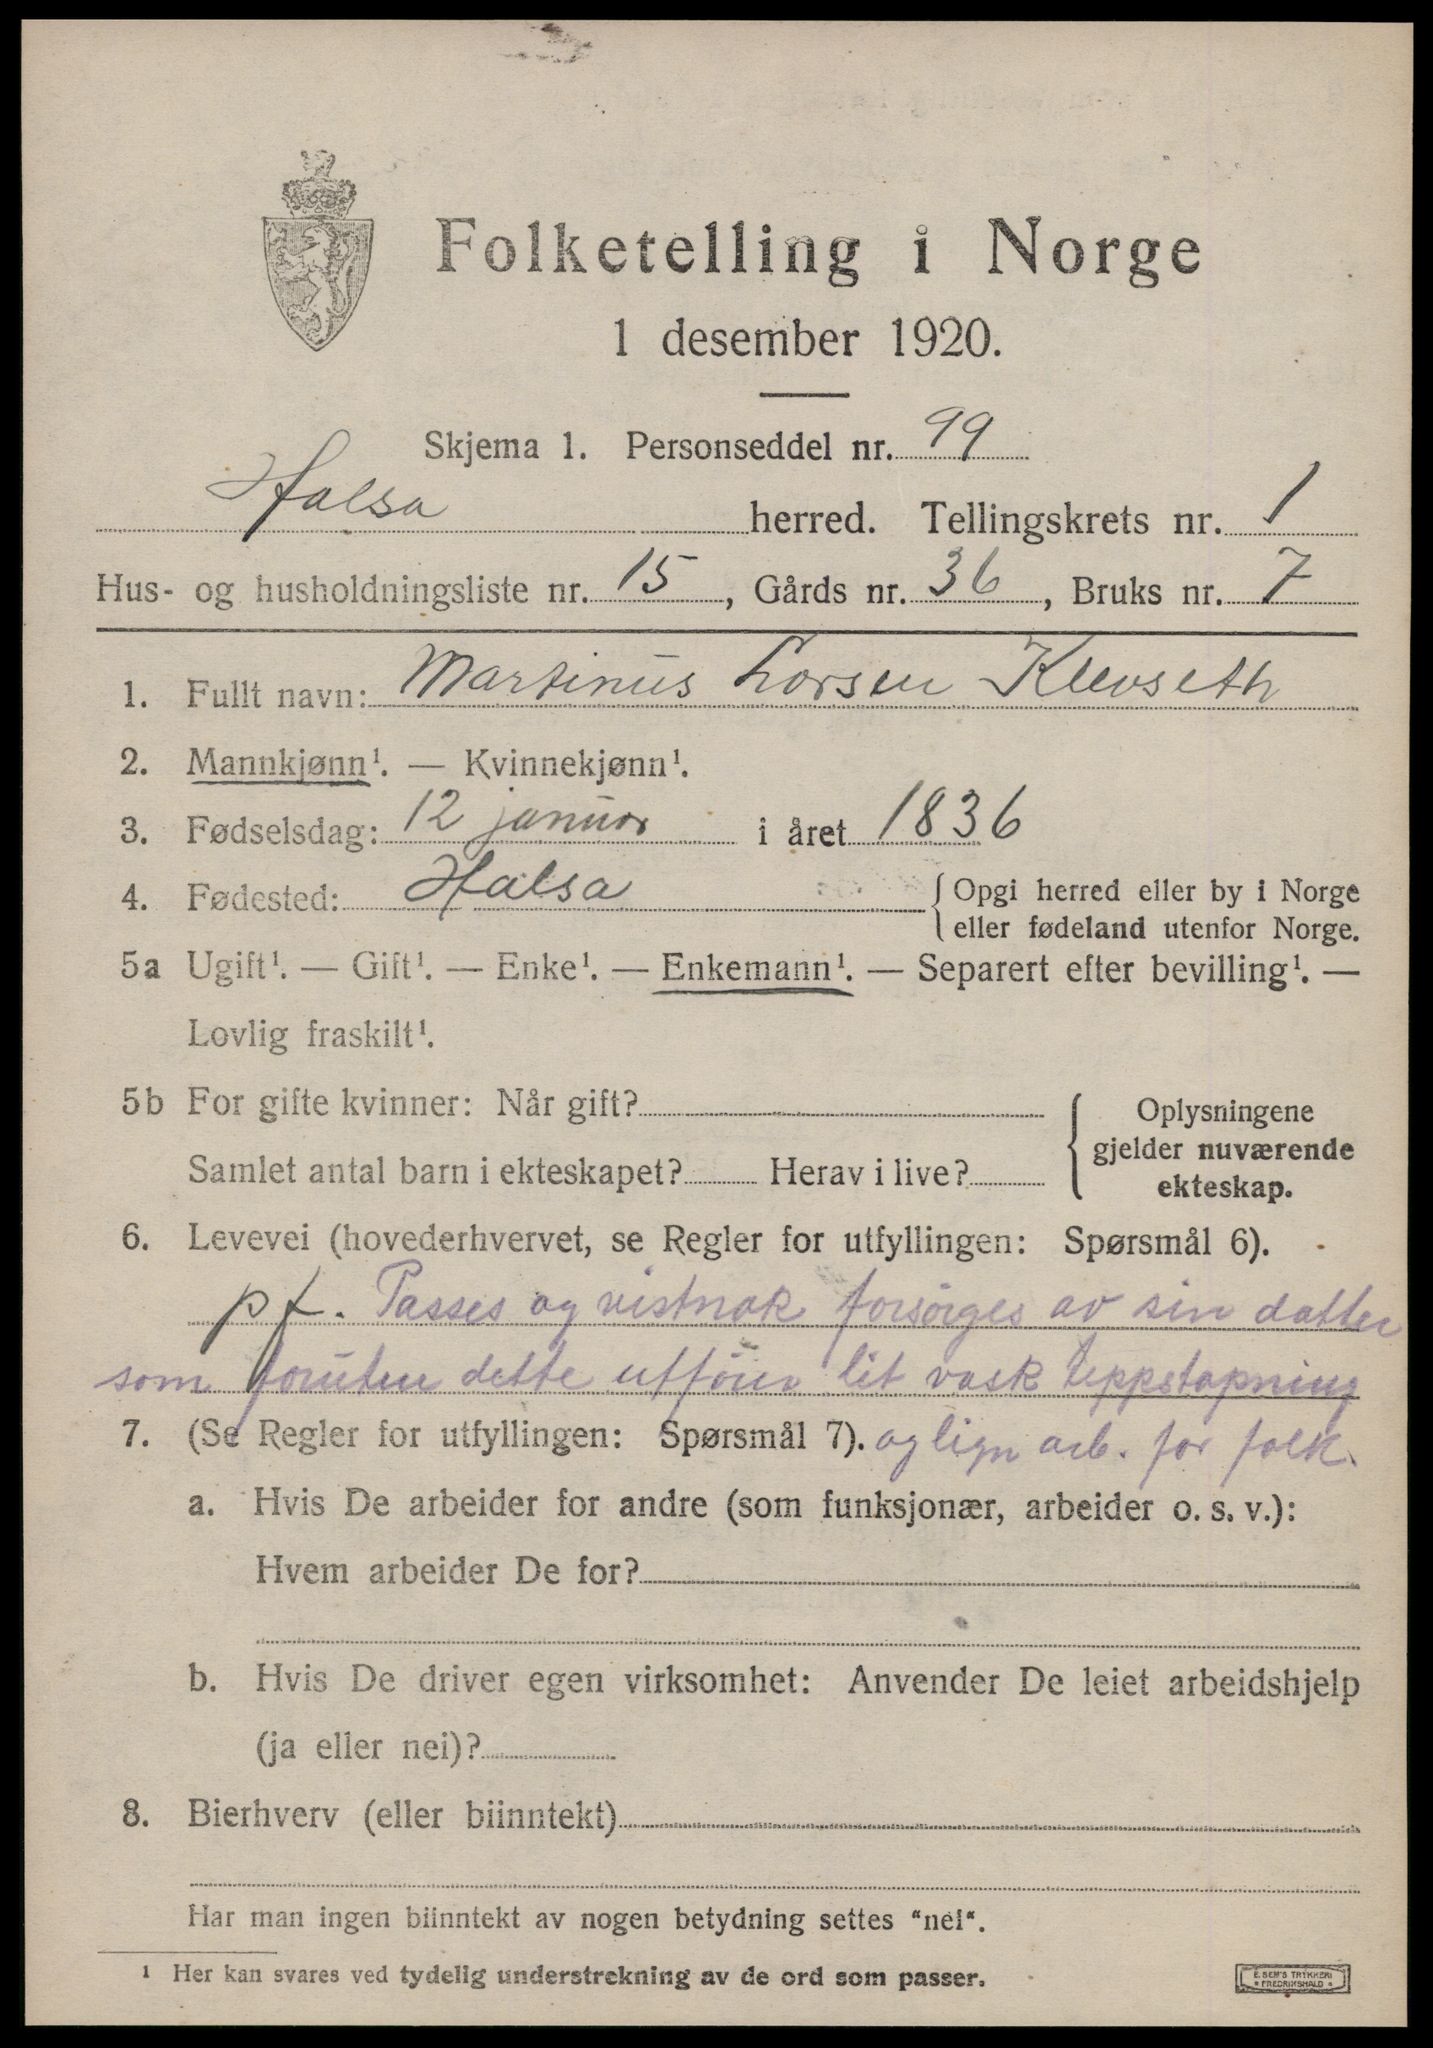 Folketelling i Norge
1 desember 1920.
Skjema 1. Personseddel nr. 99
Halsa herred. Tellingskrets nr. 1
Hus- og husholdningsliste nr. 15, Gårds nr. 36, Bruks nr. 7
1. Fullt navn: Martinus Larsen Klevseth
2. Mannkjønn¹. — Kvinnekjønn¹.
3. Fødselsdag: 12 januar i året 1836
4. Fødested: Halsa { Opgi herred eller by i Norge
eller fødeland utenfor Norge.
5a Ugift¹. — Gift¹. — Enke¹. — Enkemann¹. — Separert efter bevilling¹. —
Lovlig fraskilt¹.
5b For gifte kvinner: Når gift?
Samlet antal barn i ekteskapet? Herav i live?
Oplysningene
gjelder nuværende
ekteskap.
6. Levevei (hovederhvervet, se Regler for utfyllingen: Spørsmål 6).
pf. Passes og vistnok forsörges av sin datter
som foruten dette utförer lit vask teppstapning
7. (Se Regler for utfyllingen: Spørsmål 7). og lign arb. for folk.
a. Hvis De arbeider for andre (som funksjonær, arbeider o. s. v.):
Hvem arbeider De for?
b. Hvis De driver egen virksomhet: Anvender De leiet arbeidshjelp
(ja eller nei)?
8. Bierhverv (eller biinntekt)
Har man ingen biinntekt av nogen betydning settes "nei".
¹ Her kan svares ved tydelig understrekning av de ord som passer.
E. SEM'S TRYKKERI
FREDRIKSHALD